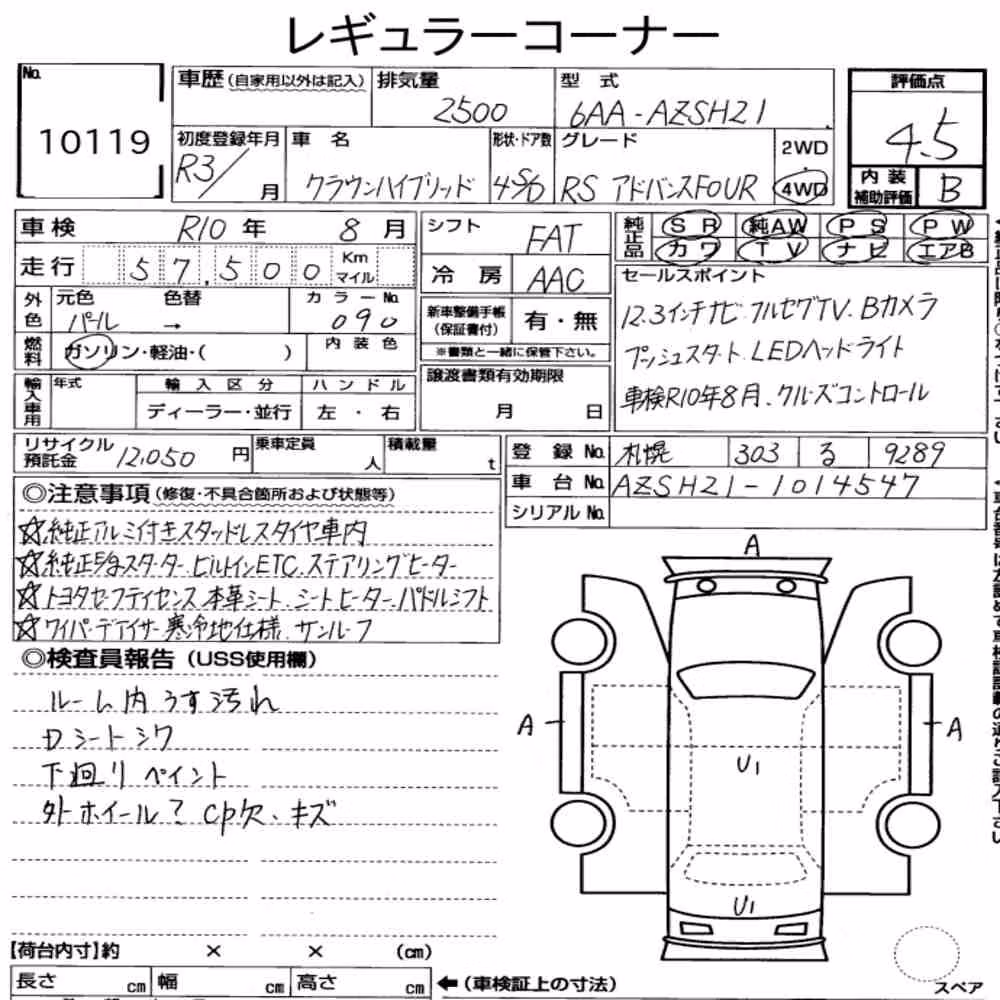 レギュラーコーナー
No. 10119
車歴 (自家用以外は記入) 排気量 2500 型式 6AA-AZSH21
評価点 4.5
初度登録年月 R3/ 月 車名 クラウンハイブリッド 形状・ドア数 4S/D グレード RS アドバンスFOUR 2WD 4WD
内装補助評価 B
車検 R10年 8月 シフト FAT 純正品 SR 純AW PS PW
カワ TV ナビ エアB
走行 57,500 Km マイル 冷房 AAC
セールスポイント
12.3インチナビ フルセグTV. Bカメラ
プッシュスタート. LEDヘッドライト
車検R10年8月. クルーズコントロール
外色 元色 パール 色替 → カラーNo. 090
新車整備手帳(保証書付) 有・無
※書類と一緒に保管下さい。
燃料 ガソリン・軽油・( ) 内装色
輸入車用 年式 輸入区分 ハンドル
ディーラー・並行 左・右
譲渡書類有効期限
月 日
リサイクル預託金 12,050円 乗車定員 人 積載量 t
登録No. 札幌 303 る 9289
車台No. AZSH21-1014547
シリアルNo.
◎注意事項 (修復・不具合箇所および状態等)
☆純正アルミ付きスタッドレスタイヤ車内
☆純正E/gスターター. ビルトインETC. ステアリングヒーター
☆トヨタセーフティセンス 本革シート. シートヒーター. パドルシフト
☆ワイパーデアイサー 寒冷地仕様. サンルーフ
◎検査員報告 (USS使用欄)
ルーム内 うす汚れ
Dシートシワ
下廻り ペイント
外ホイール? cp欠、キズ
A
A
A
U1
U1
スペア
【荷台内寸】約 × × (cm)
長さ cm 幅 cm 高さ cm ←(車検証上の寸法)